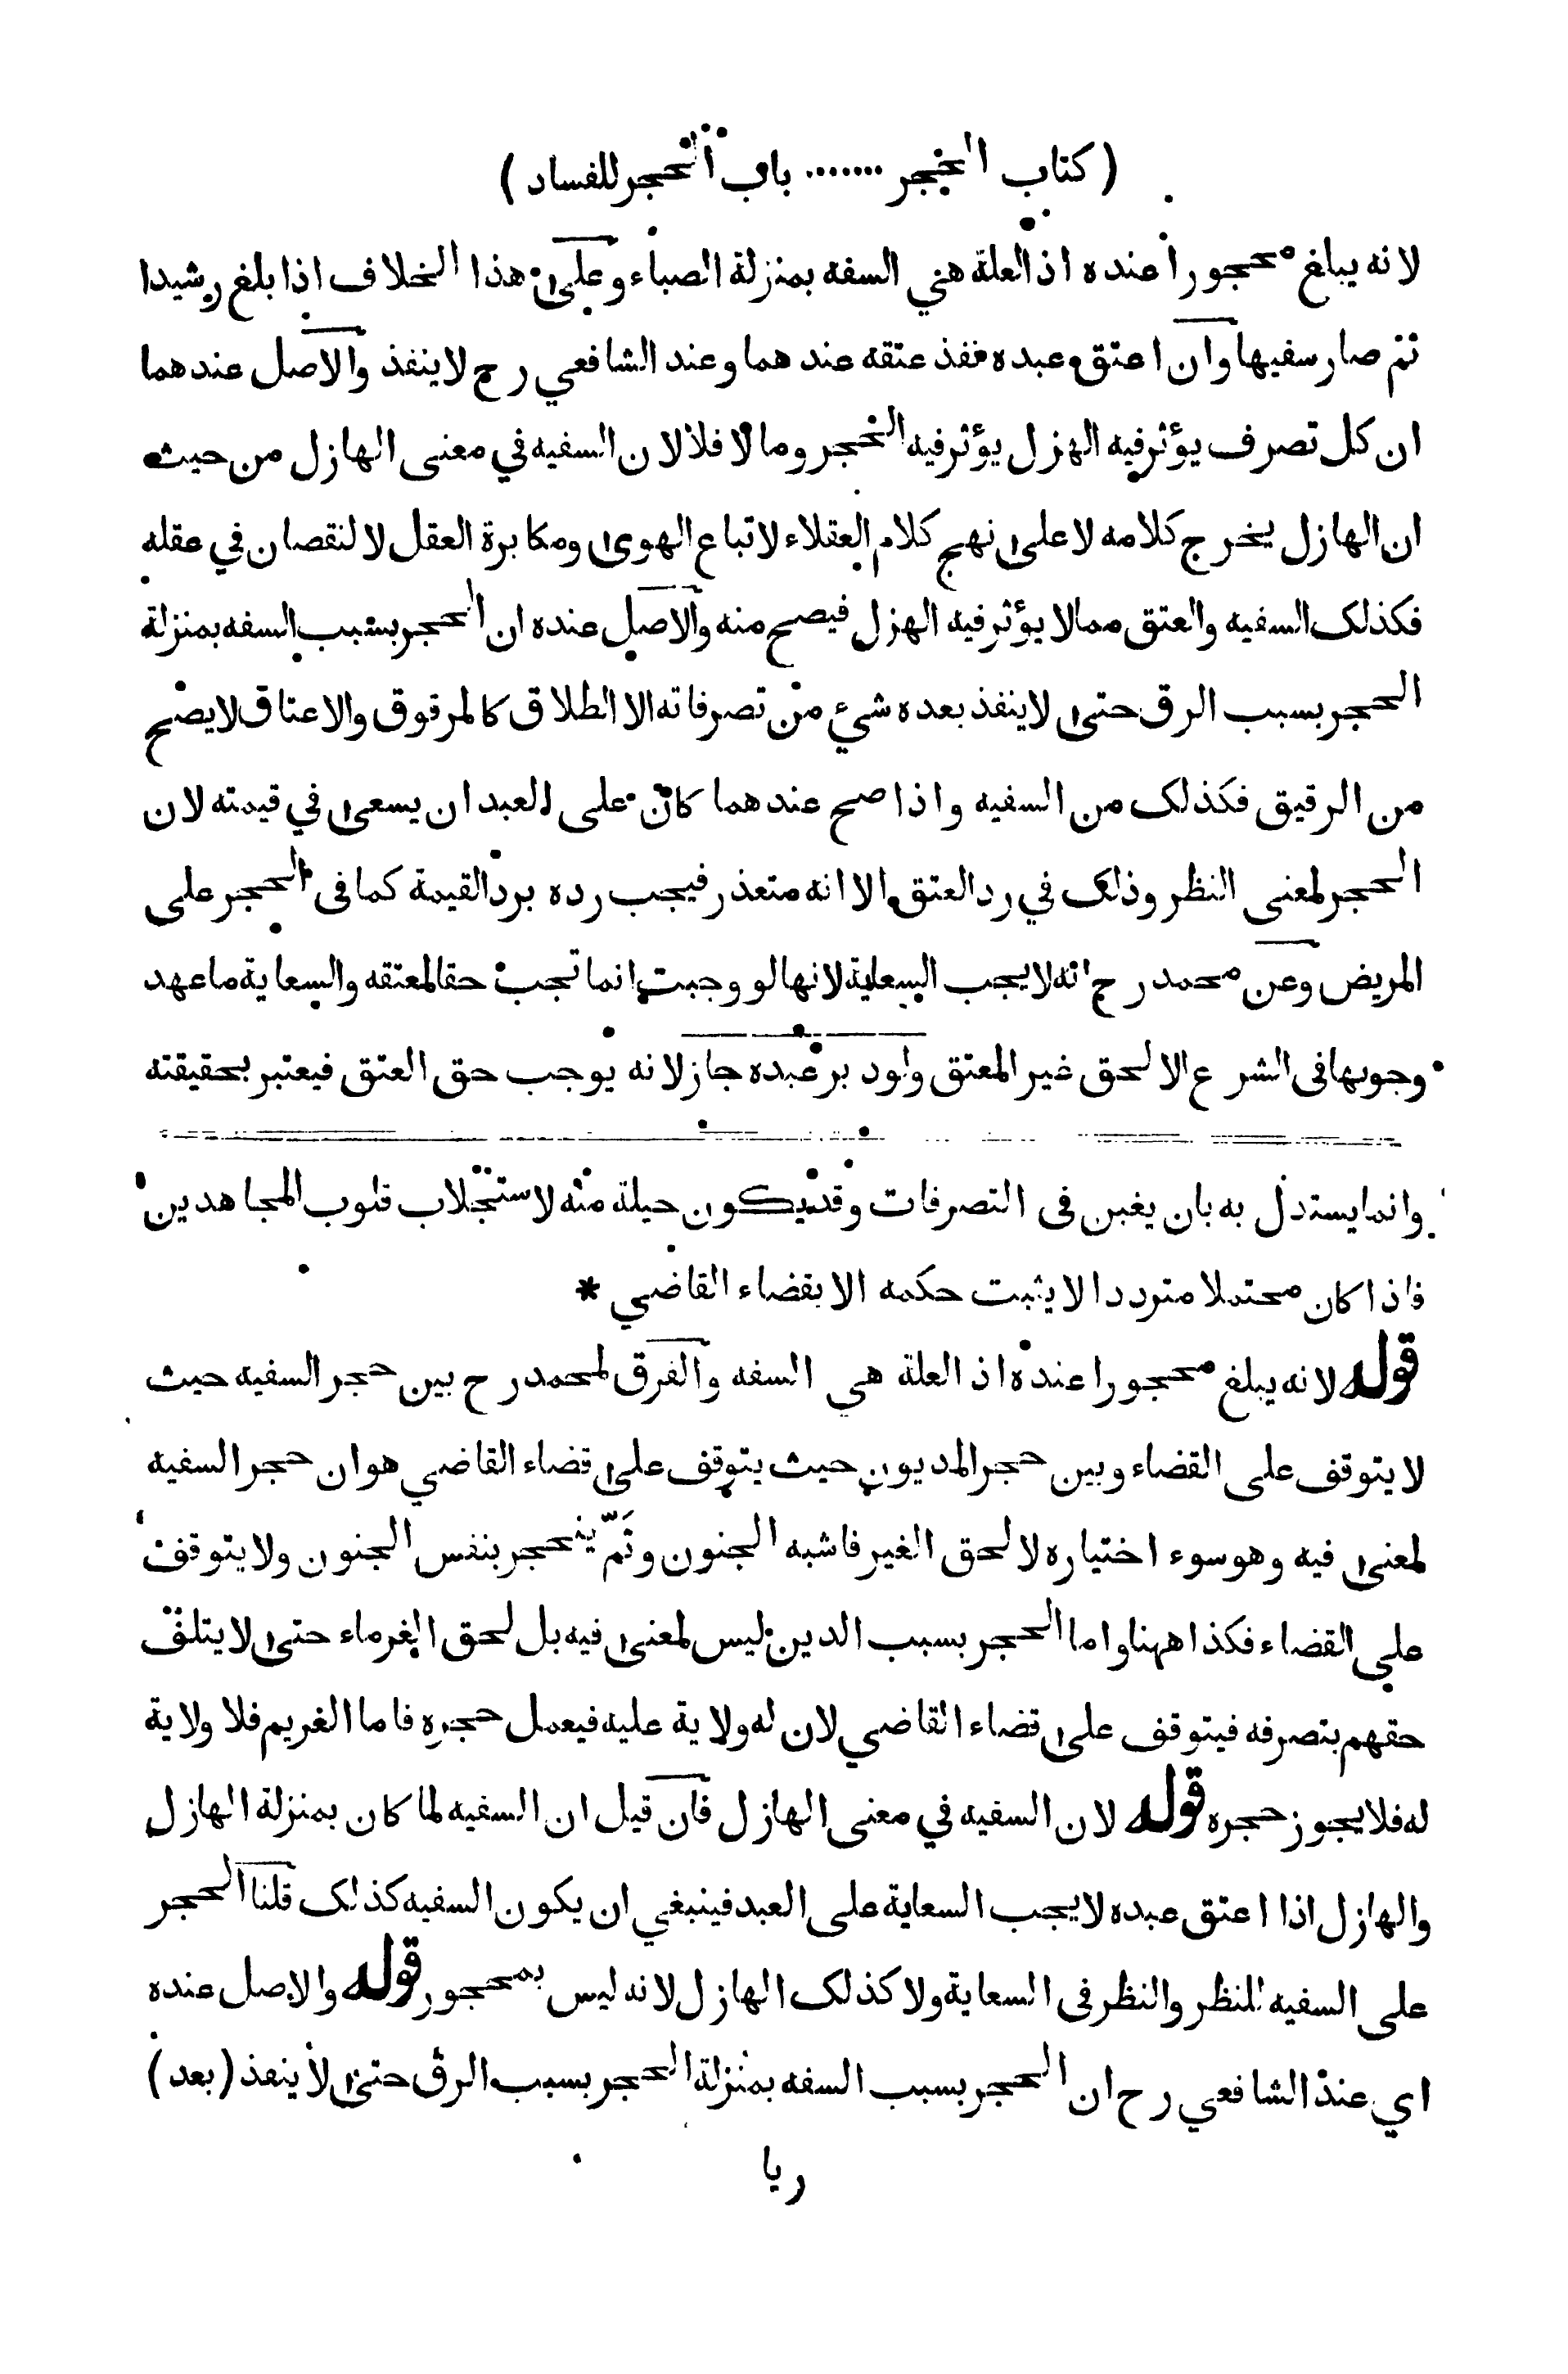 ( كتاب الحجر ....... باب الحجر للفساد )
لانه يبلغ محجورا عنده اذ العلة هي السفه بمنزلة الصباء وعلى هذا الخلاف اذا بلغ رشيدا
ثم صار سفيها وان اعتق عبده نفذ عتقه عندهما وعند الشافعي رح لاينفذ والاصل عندهما
ان كل تصرف يؤثر فيه الهزل يؤثر فيه الحجر وما لا فلا لان السفيه في معنى الهازل من حيث
ان الهازل يخرج كلامه لا على نهج كلام العقلاء لاتباع الهوى ومكابرة العقل لا لنقصان في عقله
فكذلك السفيه والعتق مما لا يؤثر فيه الهزل فيصح منه والاصل عنده ان الحجر بسبب السفه بمنزلة
الحجر بسبب الرق حتى لاينفذ بعده شيء من تصرفاته الا الطلاق كالمرقوق والاعتاق لايصح
من الرقيق فكذلك من السفيه واذا صح عندهما كان على العبد ان يسعى في قيمته لان
الحجر لمعنى النظر وذلك في رد العتق الا انه متعذر فيجب رده برد القيمة كما في الحجر على
المريض وعن محمد رح انه لايجب السعاية لانها لو وجبت انما تجب حقا لمعتقه والسعاية ما عهد
وجوبها في الشرع الا لحق غير المعتق ولو دبر عبده جاز لانه يوجب حق العتق فيعتبر بحقيقته
وانما يستدل به بان يغبن في التصرفات وقد يكون حيلة منه لاستجلاب قلوب المجاهدين
فاذا كان محتملا مترددا لا يثبت حكمه الا بقضاء القاضي *
قوله لانه يبلغ محجورا عنده اذ العلة هي السفه والفرق لمحمد رح بين حجر السفيه حيث
لا يتوقف على القضاء وبين حجر المديون حيث يتوقف على قضاء القاضي هو ان حجر السفيه
لمعنى فيه وهو سوء اختياره لا لحق الغير فاشبه الجنون وثَمّ ينحجر بنفس الجنون ولا يتوقف
على القضاء فكذا ههنا واما الحجر بسبب الدين ليس لمعنى فيه بل لحق الغرماء حتى لا يتلف
حقهم بتصرفه فيتوقف على قضاء القاضي لان له ولاية عليه فيعمل حجره فاما الغريم فلا ولاية
له فلا يجوز حجره قوله لان السفيه في معنى الهازل فان قيل ان السفيه لما كان بمنزلة الهازل
والهازل اذا اعتق عبده لايجب السعاية على العبد فينبغي ان يكون السفيه كذلك قلنا الحجر
على السفيه للنظر والنظر في السعاية ولا كذلك الهازل لانه ليس بمحجور قوله والاصل عنده
اي عند الشافعي رح ان الحجر بسبب السفه بمنزلة الحجر بسبب الرق حتى لا ينفذ ( بعد )
ريا